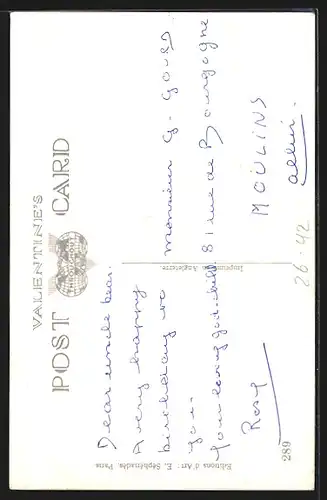 VALENTINE'S
POST CARD
Dear uncle bear.
A very happy
birthday to
you.
Your loving god-child.
Rosy
Monsieur G. Goutd
81 rue de Bourgogne
MOULINS
Allier.
Imprimé Angleterre
Editions d'Art: E. Séphériadès Paris
289
26.42